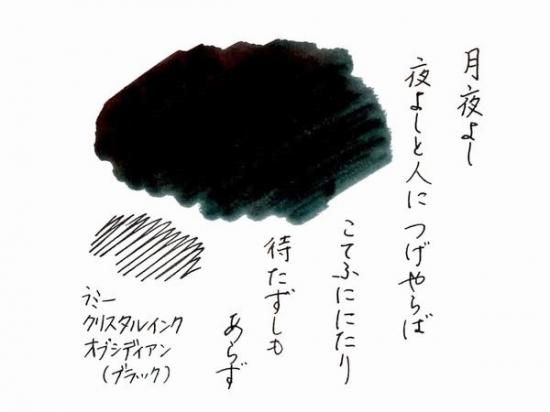 月夜よし
夜よしと人につげやらば
こてふににたり
待たずしも
あらず
ラミー
クリスタルインク
オブシディアン
(ブラック)